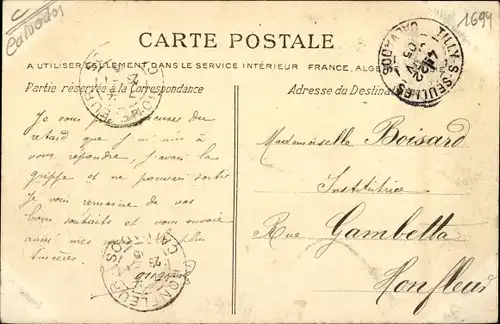 Calvados
1694
CARTE POSTALE
A UTILISER SEULEMENT DANS LE SERVICE INTÉRIEUR FRANCE, ALGÉ
Partie réservée à la Correspondance
Adresse du Destinat
TILLY-S-SEULLES
CALVADOS
Je vous
retard que j'ai mis à
vous répondre, j'avais la
grippe et ne pouvais sortir
Je vous remercie de vos
bons souhaits et vous envoie
aussi mes plus
sincères.
HONFLEUR
Mademoiselle Boisard
Institutrice
Rue Gambetta
Honfleur